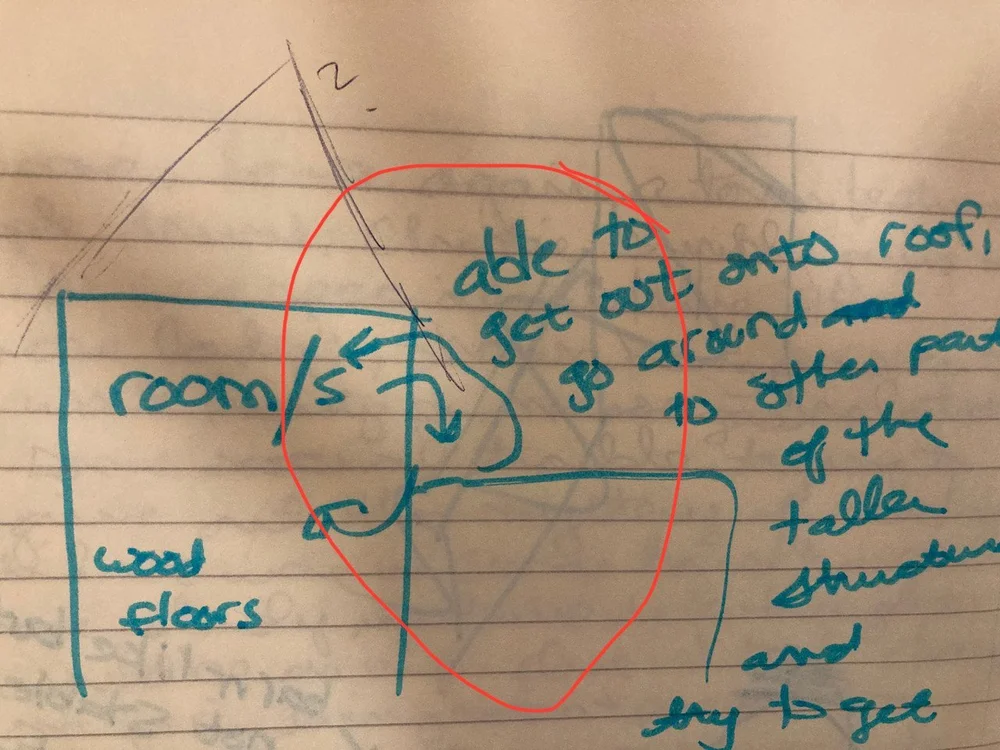 ?
able to
get out onto roof,
go around and
to other part
of the
taller
structure
and
try to get
room/s
wood
floors